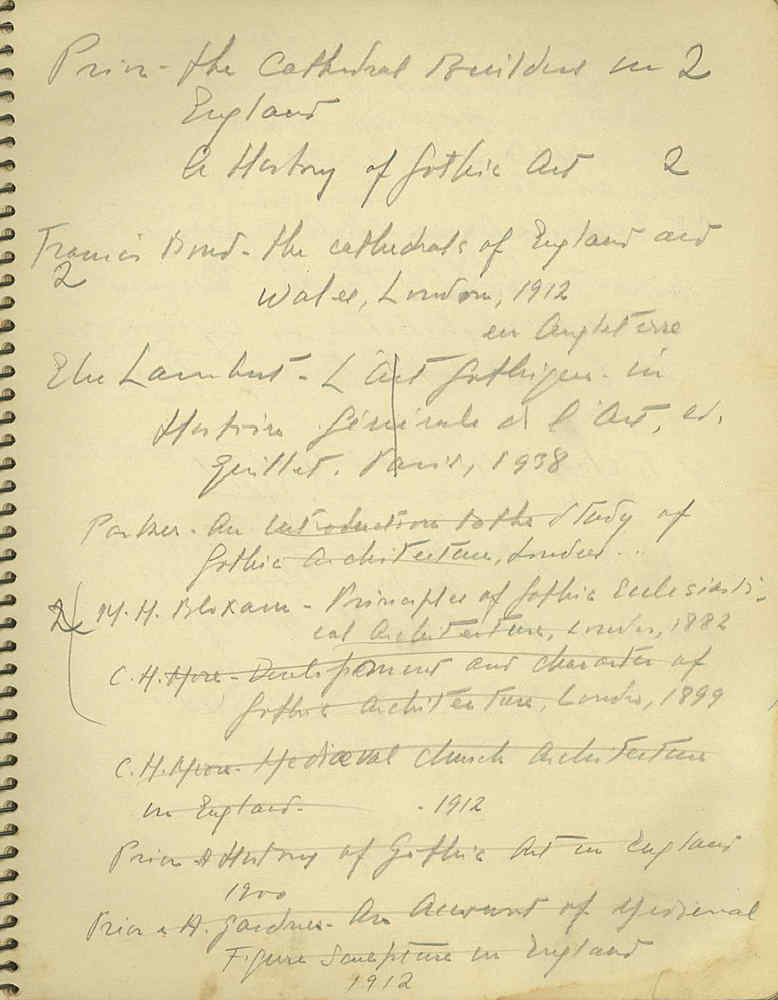 Prior - the Cathedral Builders in 2
England
A History of Gothic Art 2
Francis Bond - the cathedrals of England and
2
Wales, London, 1912
en Angleterre
Elie Lambert - L'art gothique in
Histoire Générale de l'Art, ed.
Quillet. Paris, 1938
Parker - An introduction to the study of
Gothic architecture, London ..
2 M. H. Bloxam - Principles of Gothic Ecclesiasti-
cal Architecture, London, 1882
C. H. More - Development and character of
Gothic architecture, London, 1899
C. H. More - Mediæval church architecture
in England - 1912
Prior A History of Gothic Art in England
1900
Prior & A. Gardner - An Account of Medieval
Figure Sculpture in England
1912